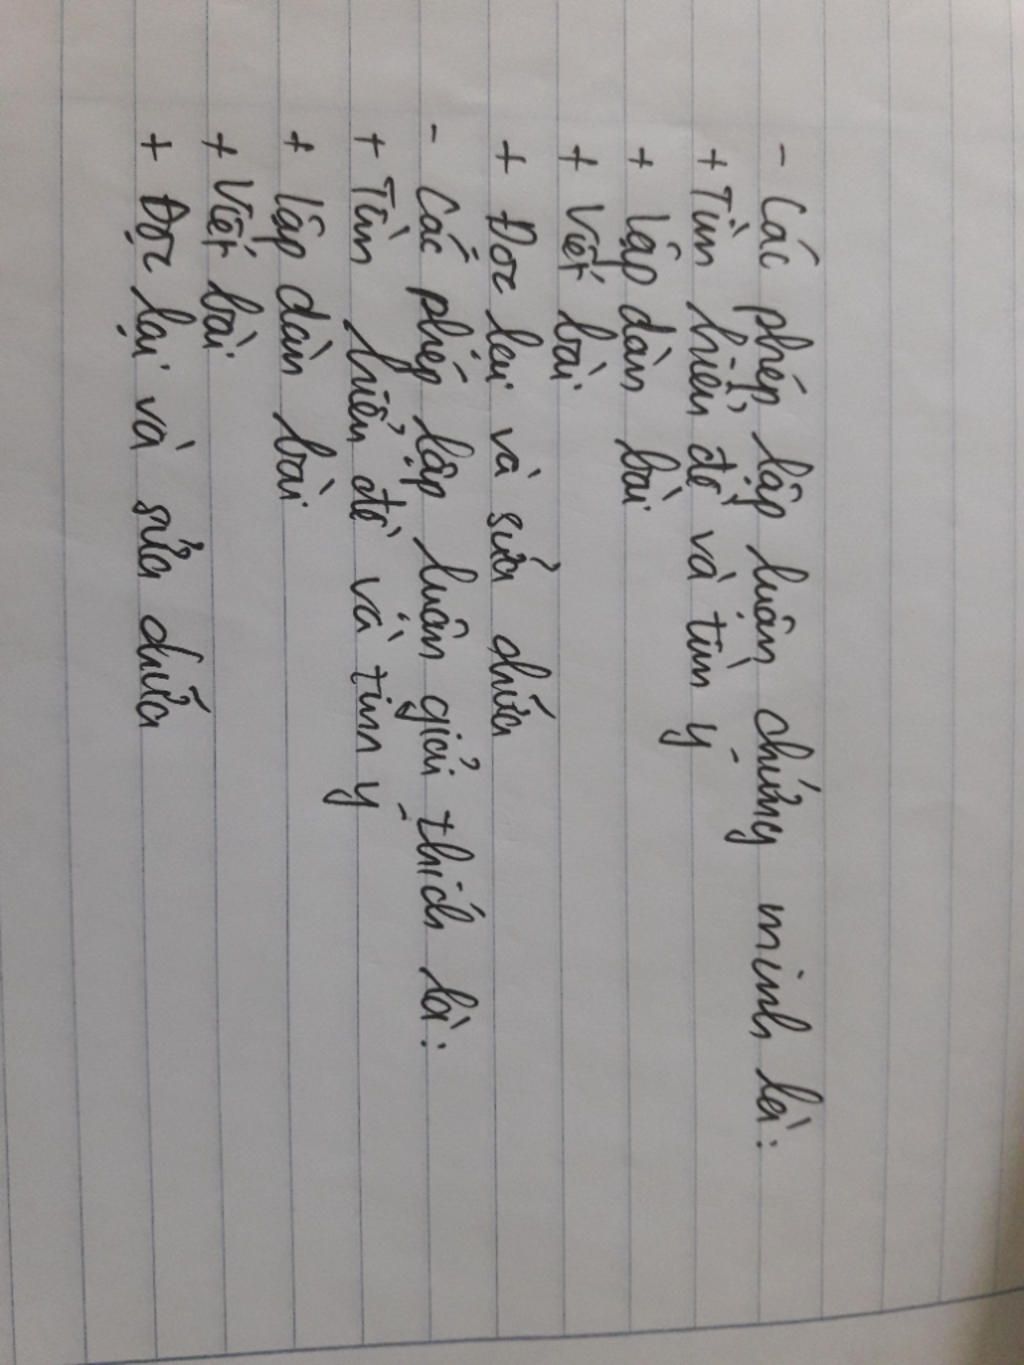 - Các phép lập luận chứng minh là:
+ Tìm hiểu đề và tìm ý
+ lập dàn bài
+ Viết bài
+ Đọc lại và sửa chữa
- Các phép lập luận giải thích là:
+ Tìm hiểu đề và tìm ý
+ lập dàn bài
+ Viết bài
+ Đọc lại và sửa chữa